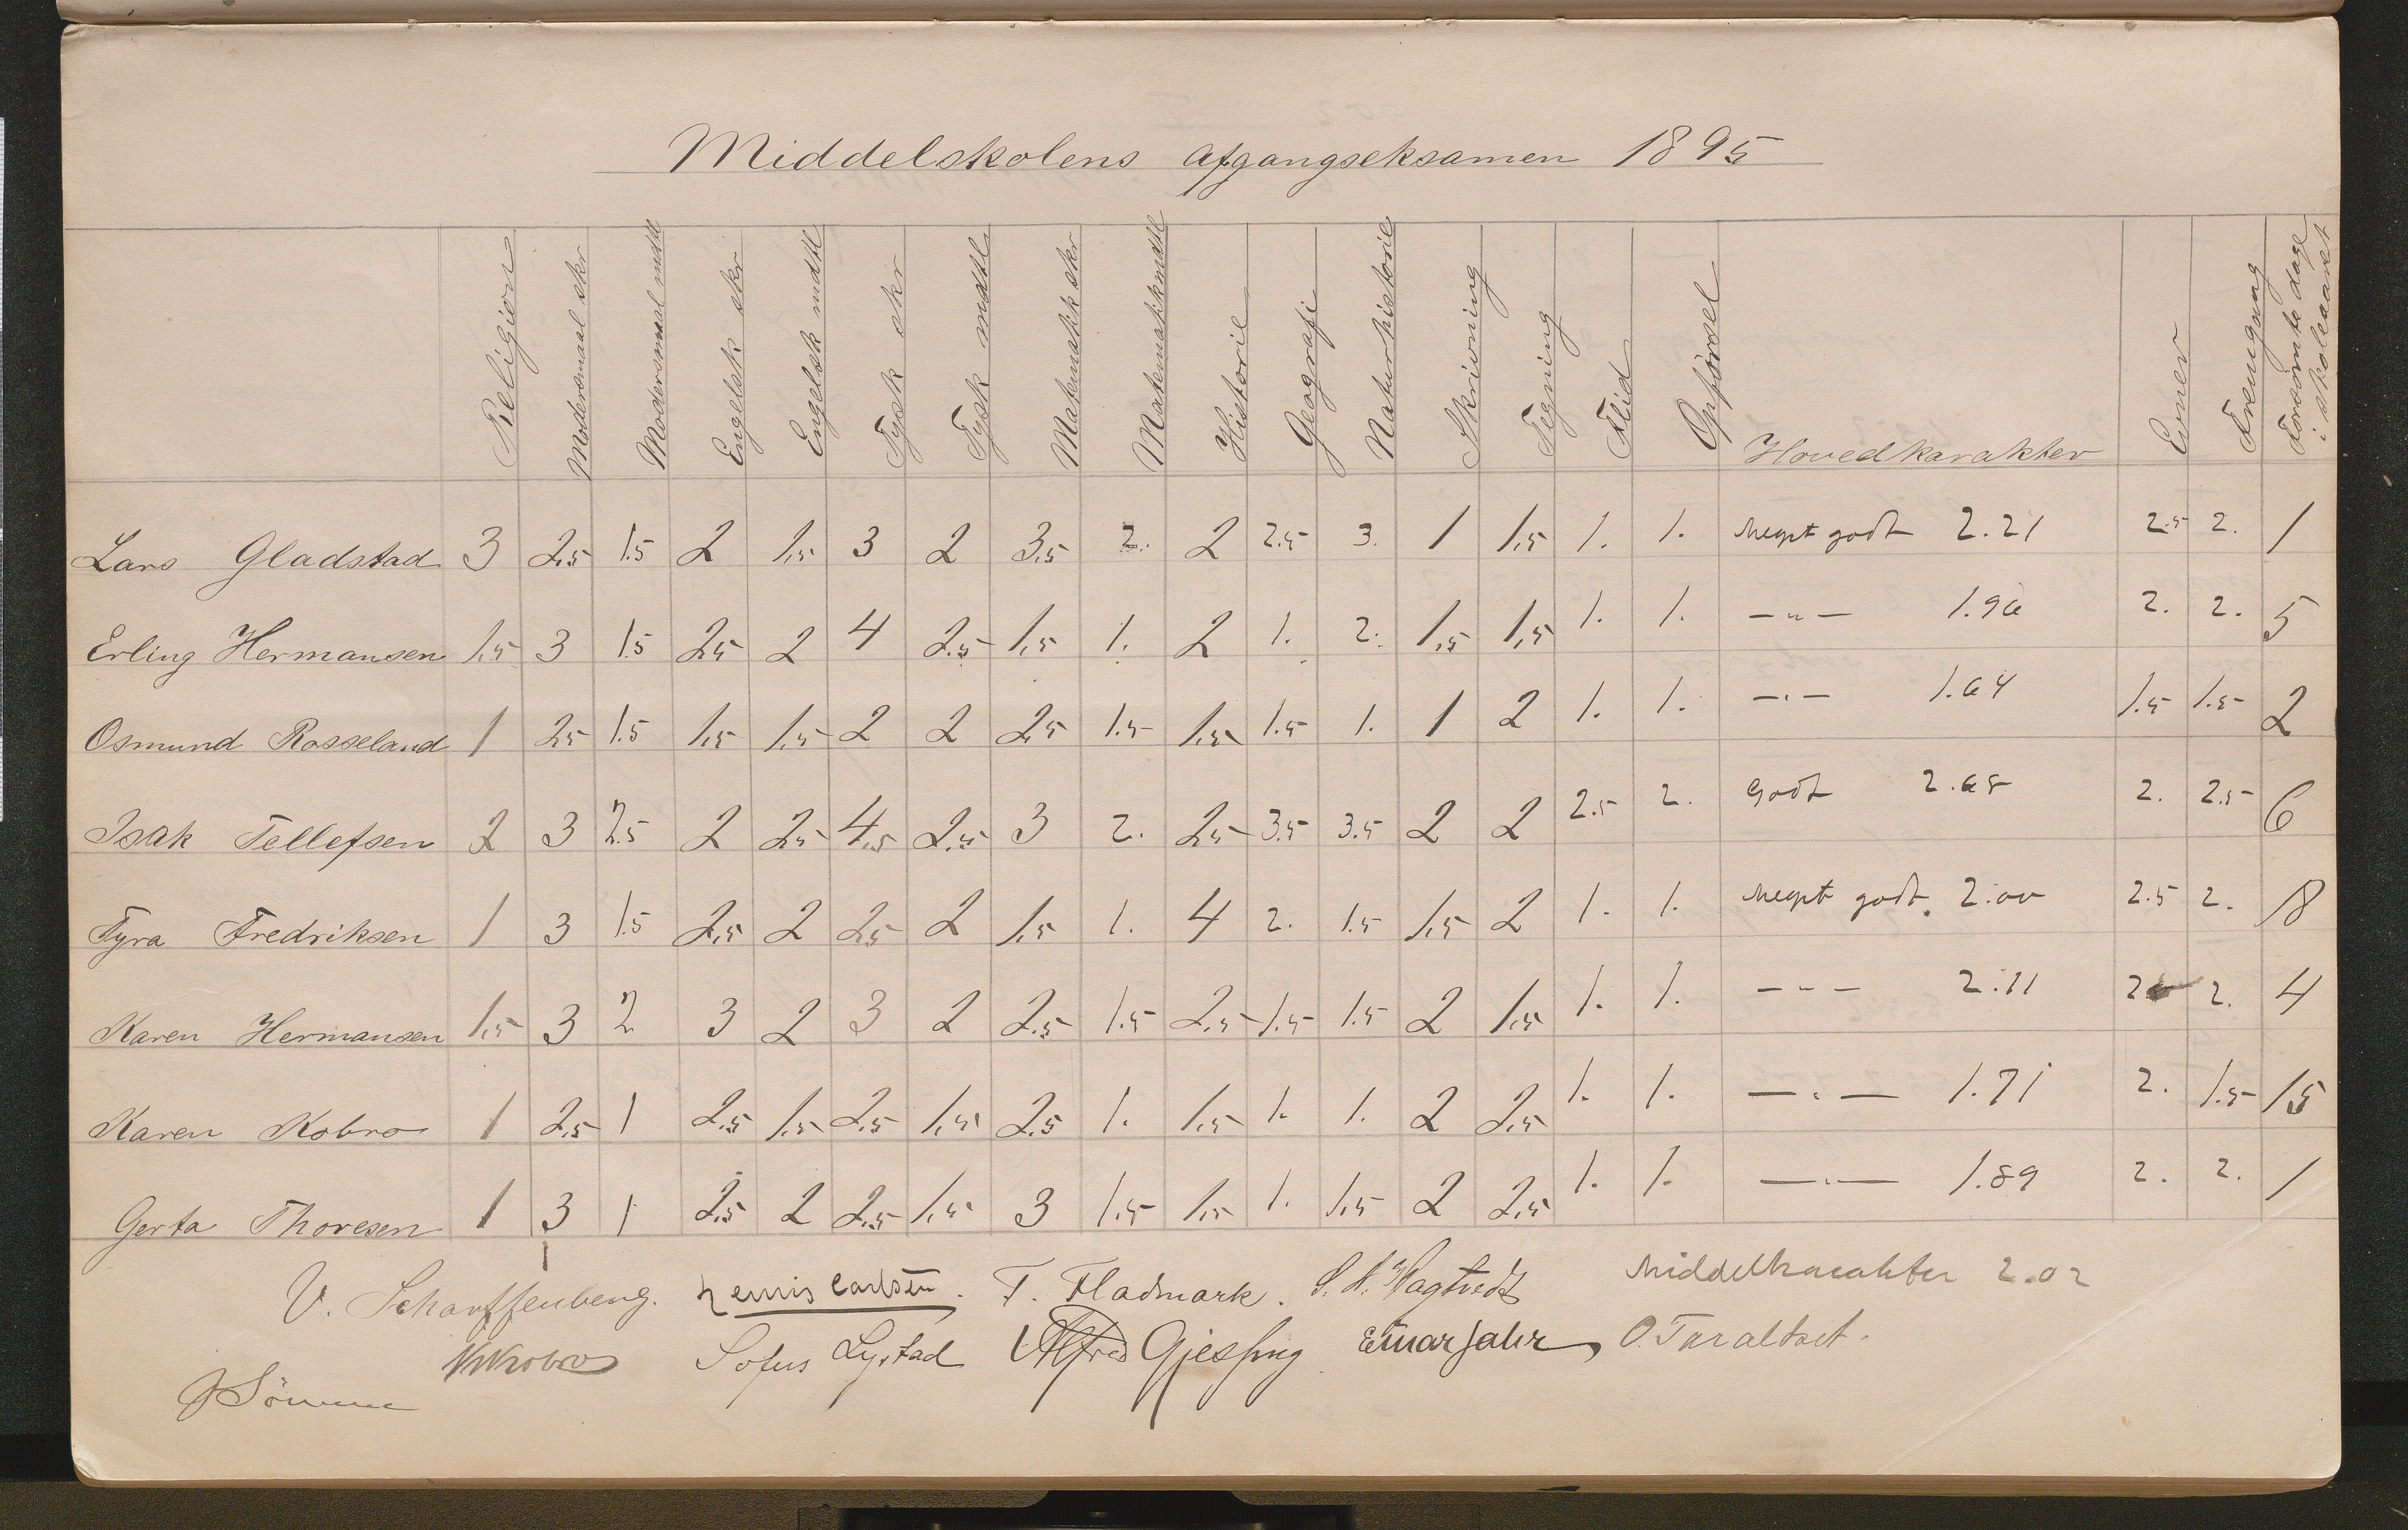 Middelskolens Afgangseksamen 1895
Religion Modersmaal skr Modersmaal mdtl Engelsk skr Engelsk mdtl Tysk skr Tysk mdtl Matematikk skr Matematikk mdtl Historie Geografi Naturhistorie Skrivning Tegning Flid Opførsel Hovedkarakter Evner Fremgang Forsømte dage i skoleaaret
Lars Gladstad 3 2,5 1.5 2 1,5 3 2 3,5 2. 2 2.5 3. 1 1,5 1. 1. Meget godt 2.21 2.5 2. 1
Erling Hermansen 1,5 3 1.5 2,5 2 4 2,5 1,5 1. 2 1. 2. 1,5 1,5 1. 1. —„— 1.96 2. 2. 5
Osmund Rosseland 1 2,5 1.5 1,5 1,5 2 2 2,5 1.5 1,5 1.5 1. 1 2 1. 1. —„— 1.64 1.5 1.5 2
Isak Tellefsen 2 3 2.5 2 2,5 4,5 2,5 3 2. 2,5 3.5 3.5 2 2 2.5 2. Godt 2.68 2. 2.5 6
Tyra Fredriksen 1 3 1.5 2,5 2 2,5 2 1,5 1. 4 2. 1.5 1,5 2 1. 1. Meget godt. 2.00 2.5 2. 18
Karen Hermansen 1,5 3 2 3 2 3 2 2,5 1.5 2,5 1.5 1.5 2 1,5 1. 1. —„— 2.11 2 2. 4
Karen Kobro 1 2,5 1 2,5 1,5 2,5 1,5 2,5 1. 1,5 1. 1. 2 2,5 1. 1. —„— 1.71 2. 1.5 15
Gerta Thoresen 1 3 1 2,5 2 2,5 1,5 3 1.5 1,5 1. 1.5 2 2,5 1. 1. —„— 1.89 2. 2. 1
V. Scharffenberg. Carlsen. F. Fladmark. S. H. Hagtvedt Middelkarakter 2.02
Kobro Sofus Lystad Alfred Gjessing Einar Jahr O. Taraldset.
J Sömme